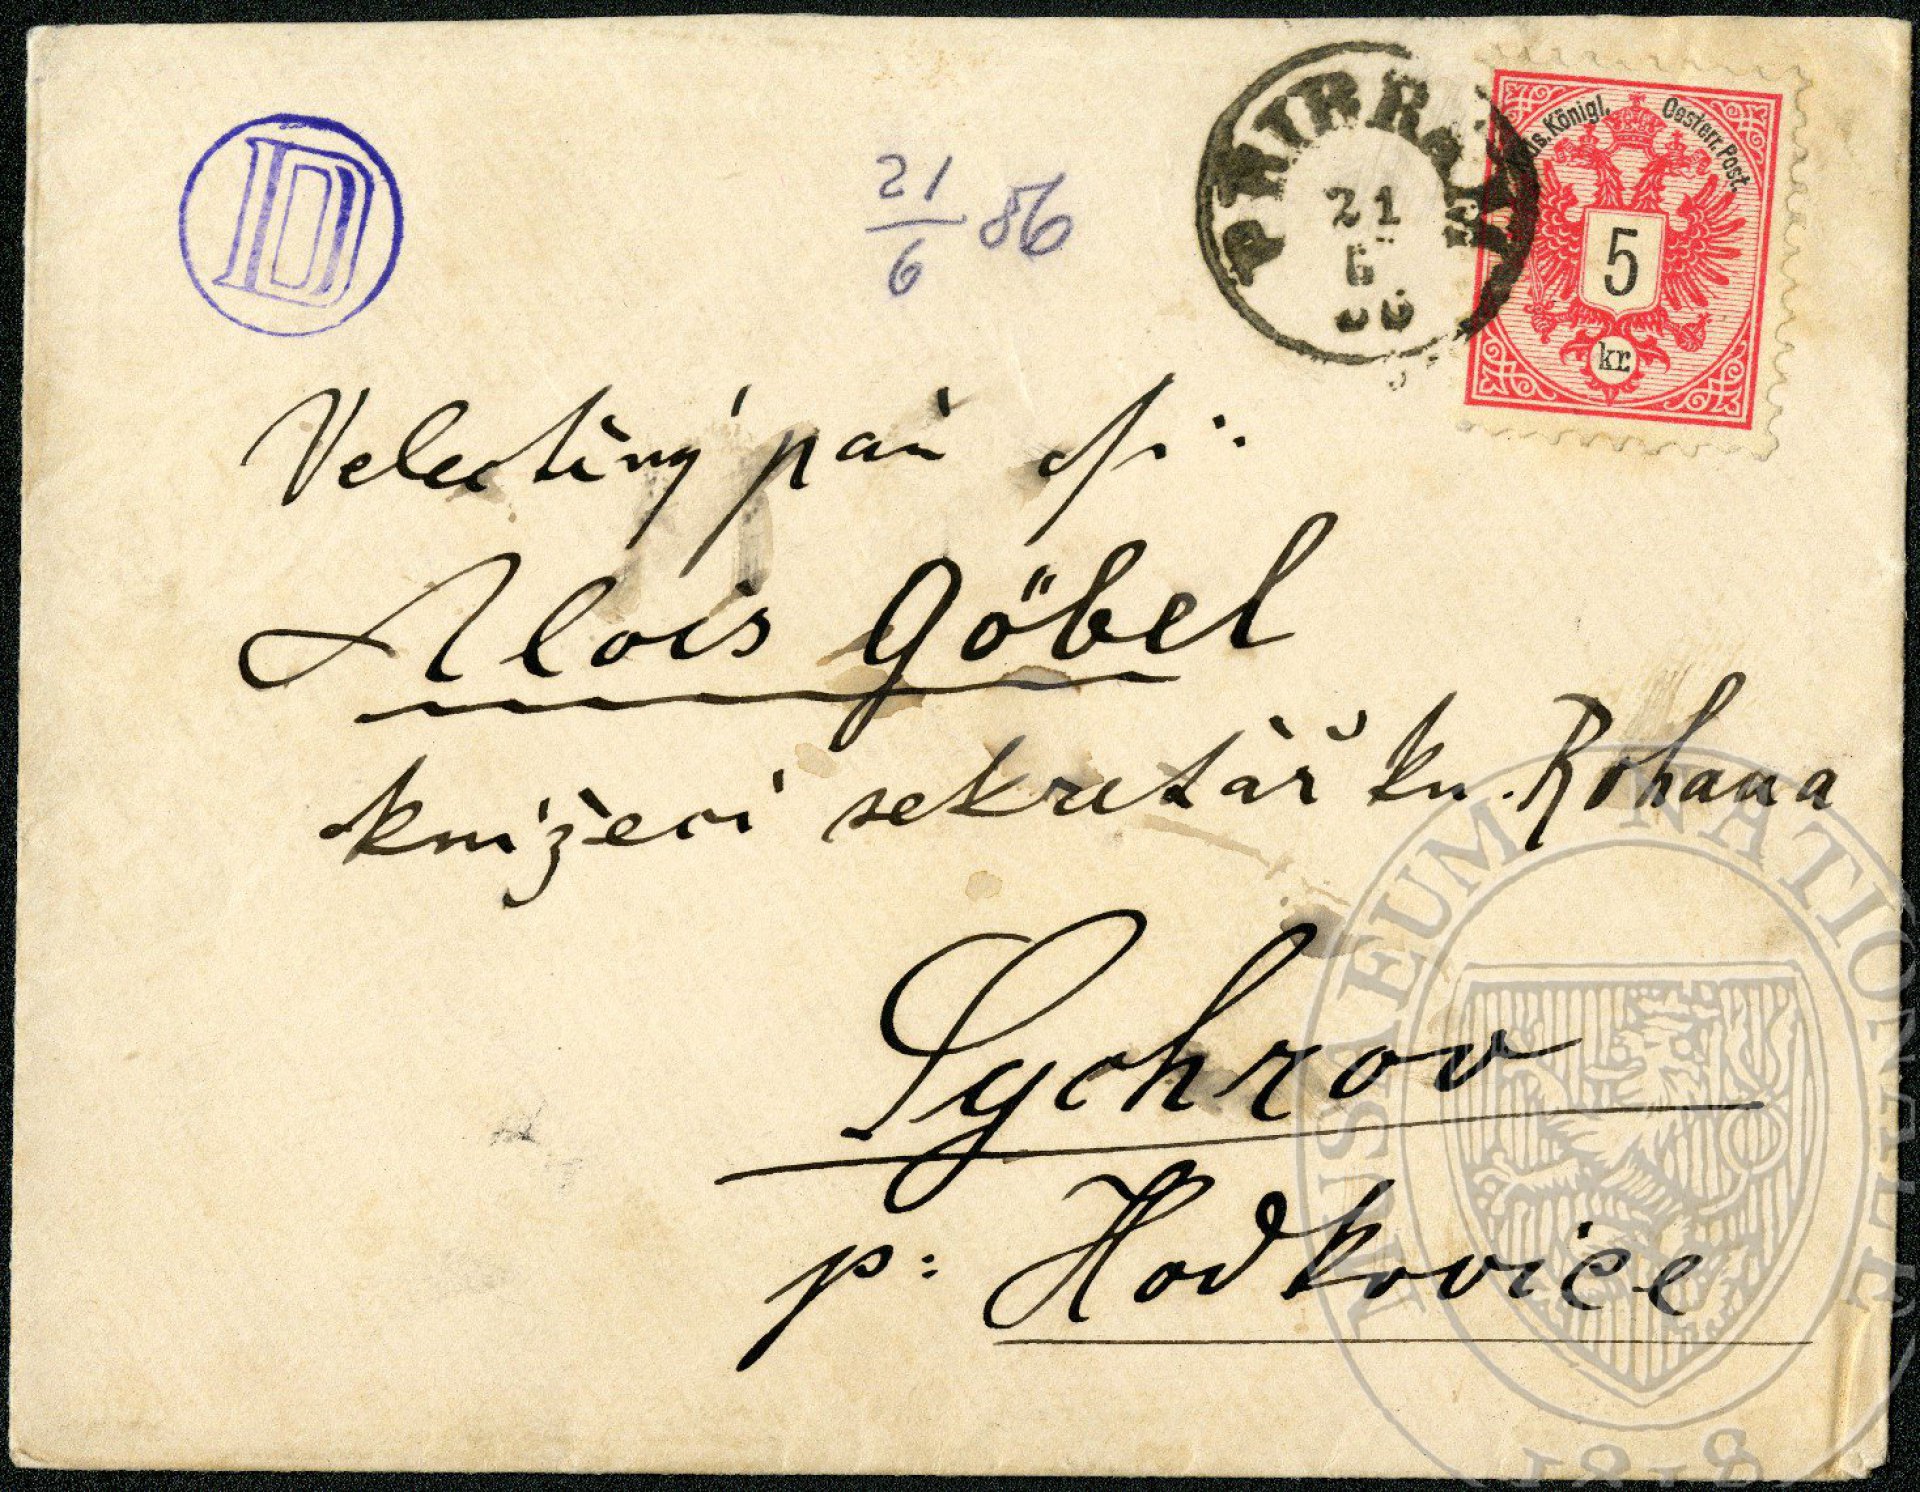 D
21/6 86
PRIBRAM
21
6
86
Kais. Königl. Oesterr. Post.
5
kr.
Velectěný pán p:
Alois Göbel
knížecí sekretář kn. Rohana
Sychrov
p: Hodkovice
MUSAEUM NATIONALE
1818